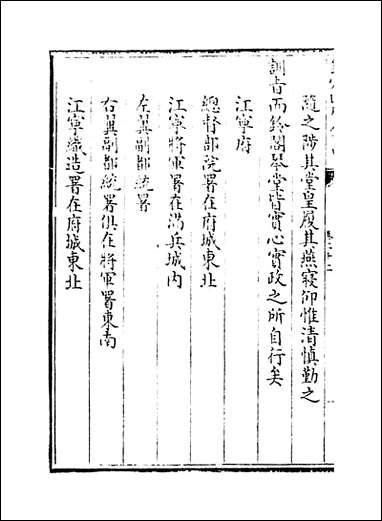 隨之陟其堂皇履其燕寢仰惟清慎勤之
訓旨而鈴閣琴堂皆實心實政之所自行矣
江寧府
總督部院署在府城東北
江寧將軍署在滿兵城内
左翼副都統署
右翼副都統署俱在將軍署東南
江寧織造署在府城東北